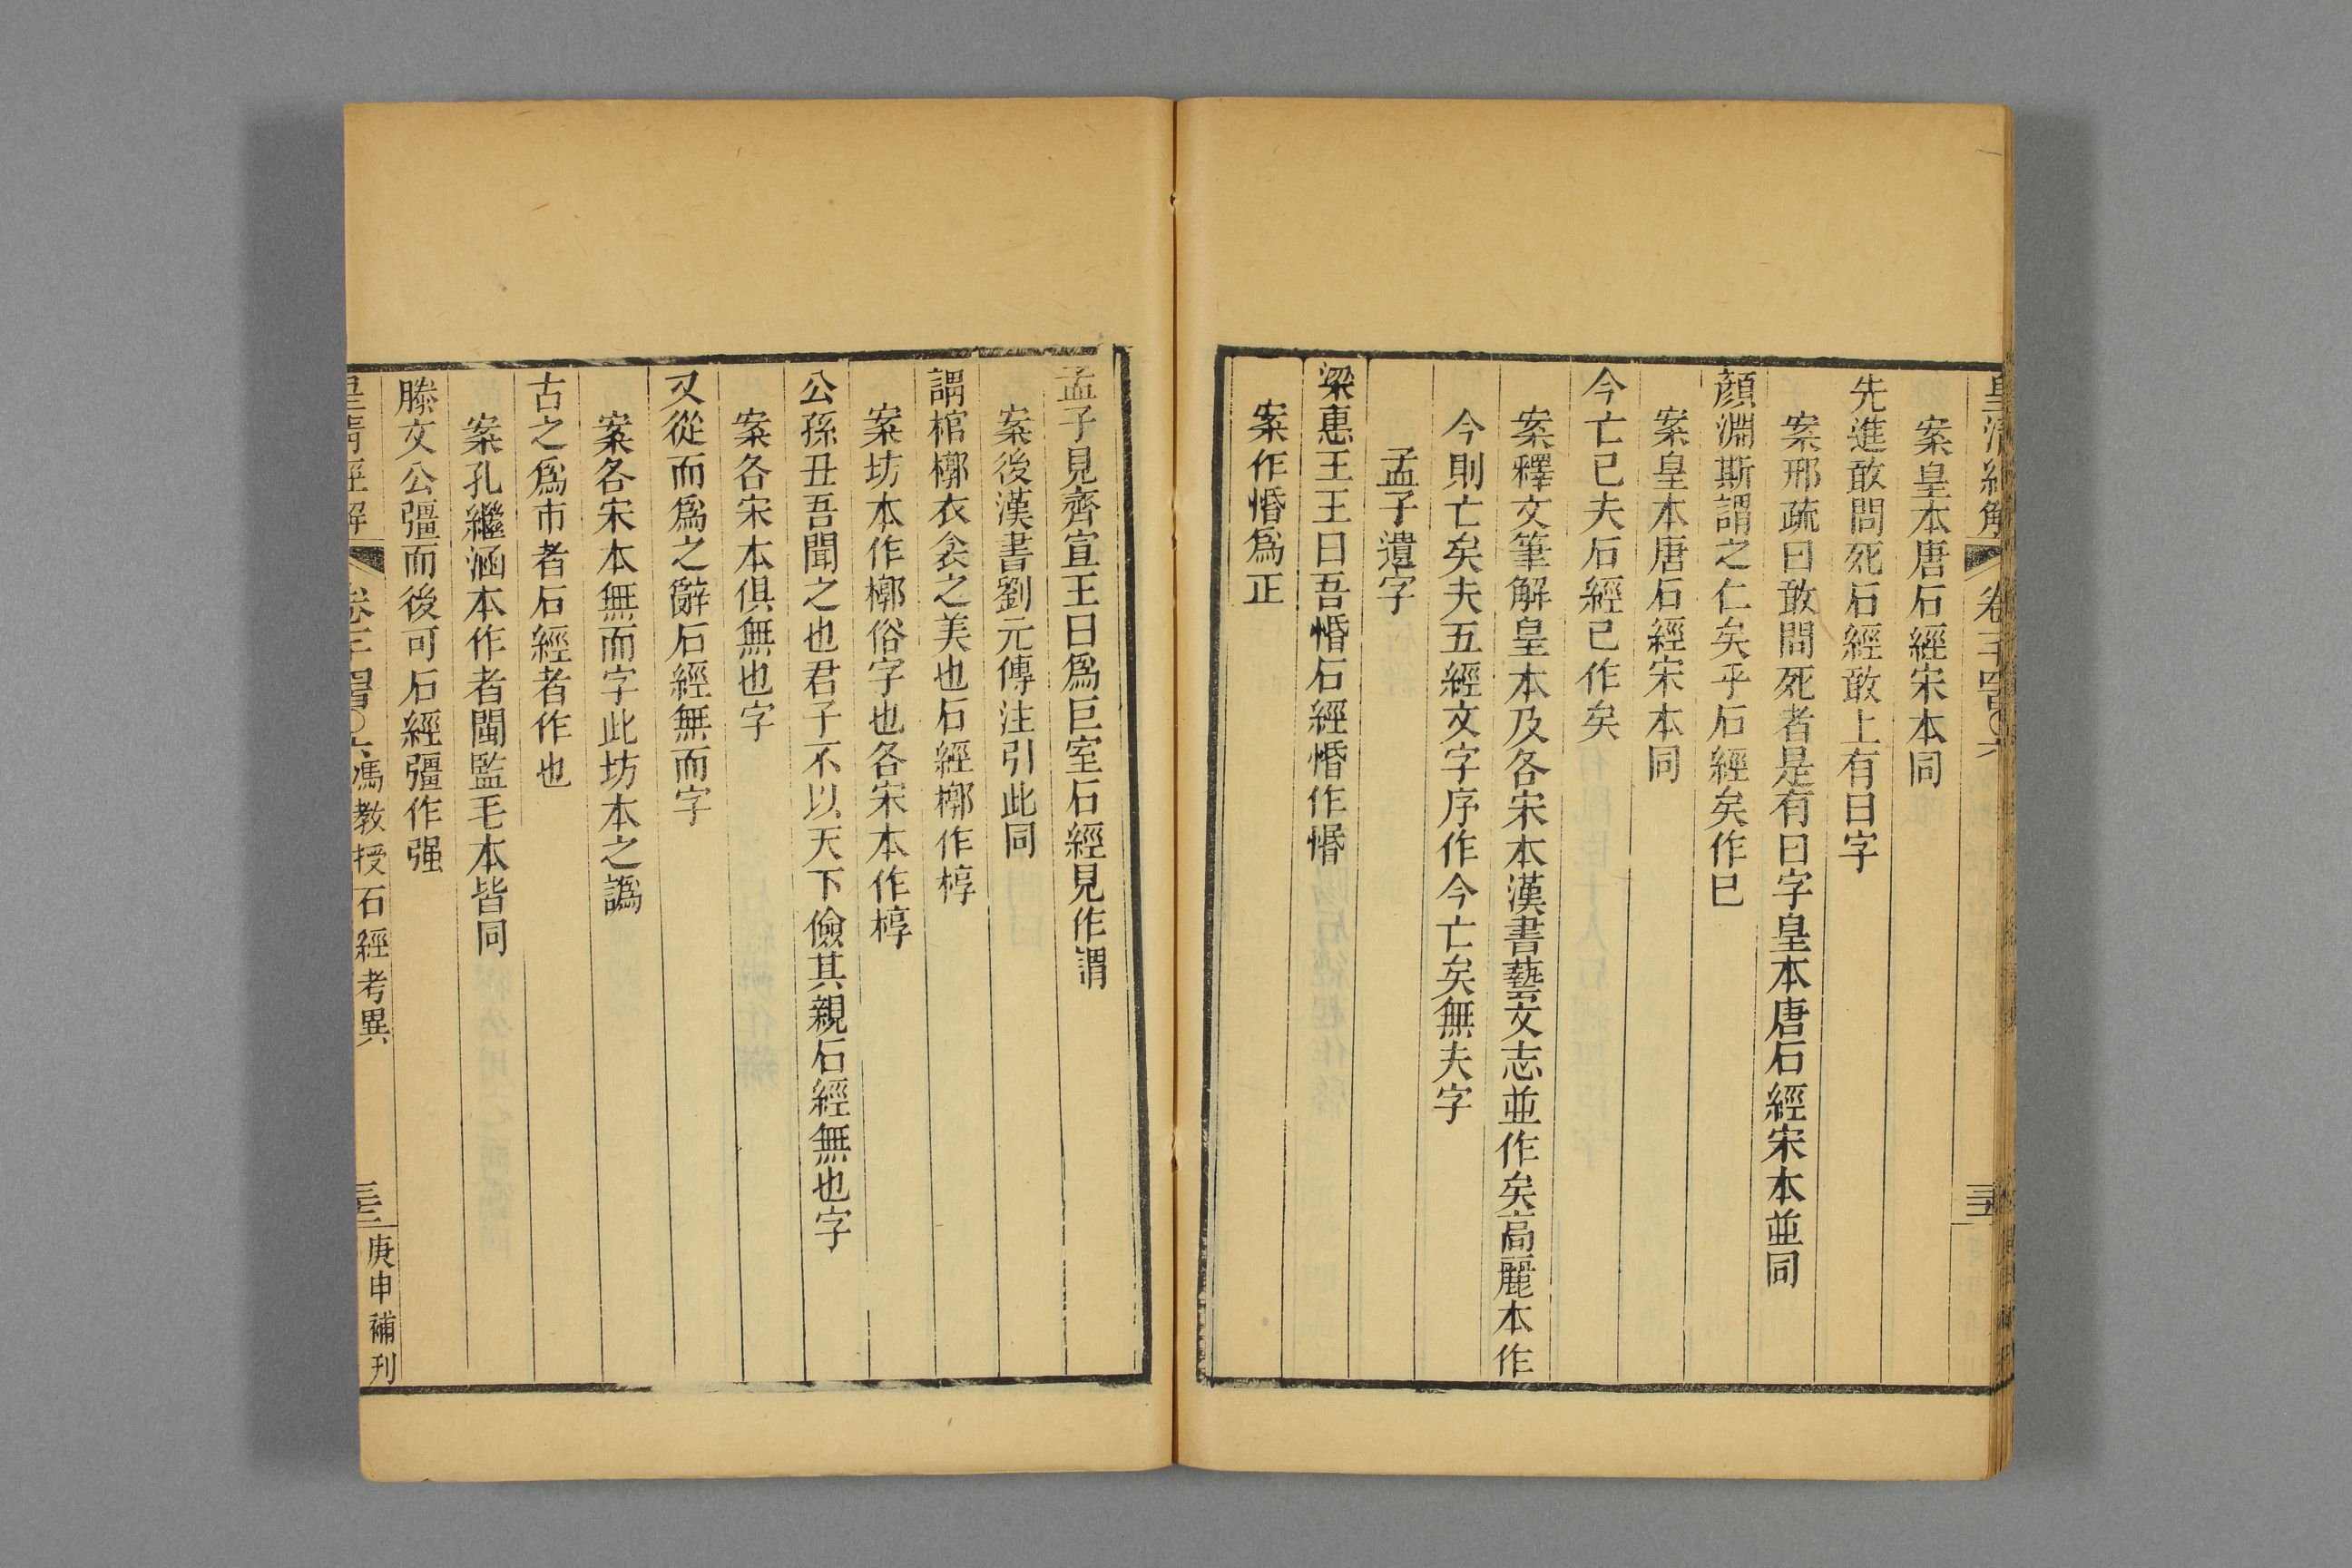 案皇本唐石經宋本同
先進敢問死石經敢上有曰字
案邢疏曰敢問死者是有曰字皇本唐石經宋本並同
顏淵斯謂之仁矣乎石經矣作已
案皇本唐石經宋本同
今亡已夫石經已作矣
案釋文筆解皇本及各宋本漢書藝文志並作矣高麗本作
今則亡矣夫五經文字序作今亡矣無夫字
孟子遺字
梁惠王王曰吾惛石經惛作惽
案作惽爲正
孟子見齊宣王曰爲巨室石經見作謂
案後漢書劉元傳注引此同
謂棺槨衣衾之美也石經槨作椁
案坊本作槨俗字也各宋本作椁
公孫丑吾聞之也君子不以天下儉其親石經無也字
案各宋本俱無也字
又從而爲之辭石經無而字
案各宋本無而字此坊本之譌
古之爲市者石經者作也
案孔繼涵本作者閩監毛本皆同
滕文公彊而後可石經彊作强
皇清經解 馮教授石經考異 庚申補刊